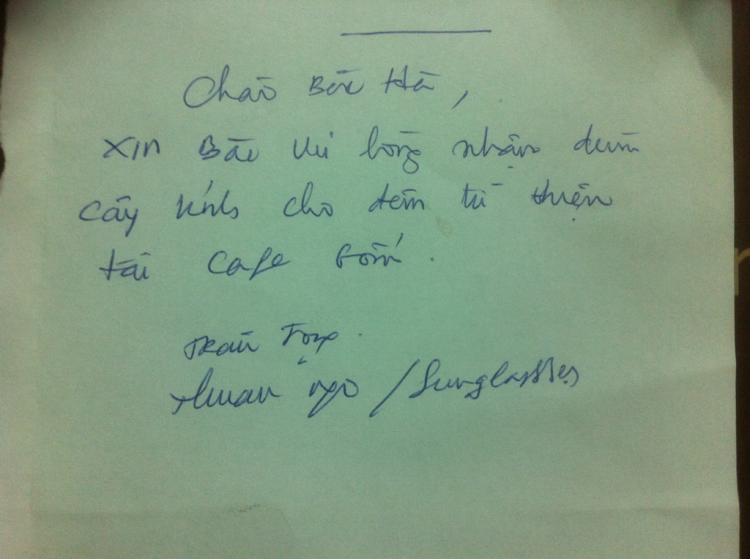 Chào Bác Hà,
XIN Bác vui lòng nhận dùm
cây kính cho đêm từ thiện
tại cafe Gốm.
Trân Trọng.
Thuan Ngo / Sunglasses